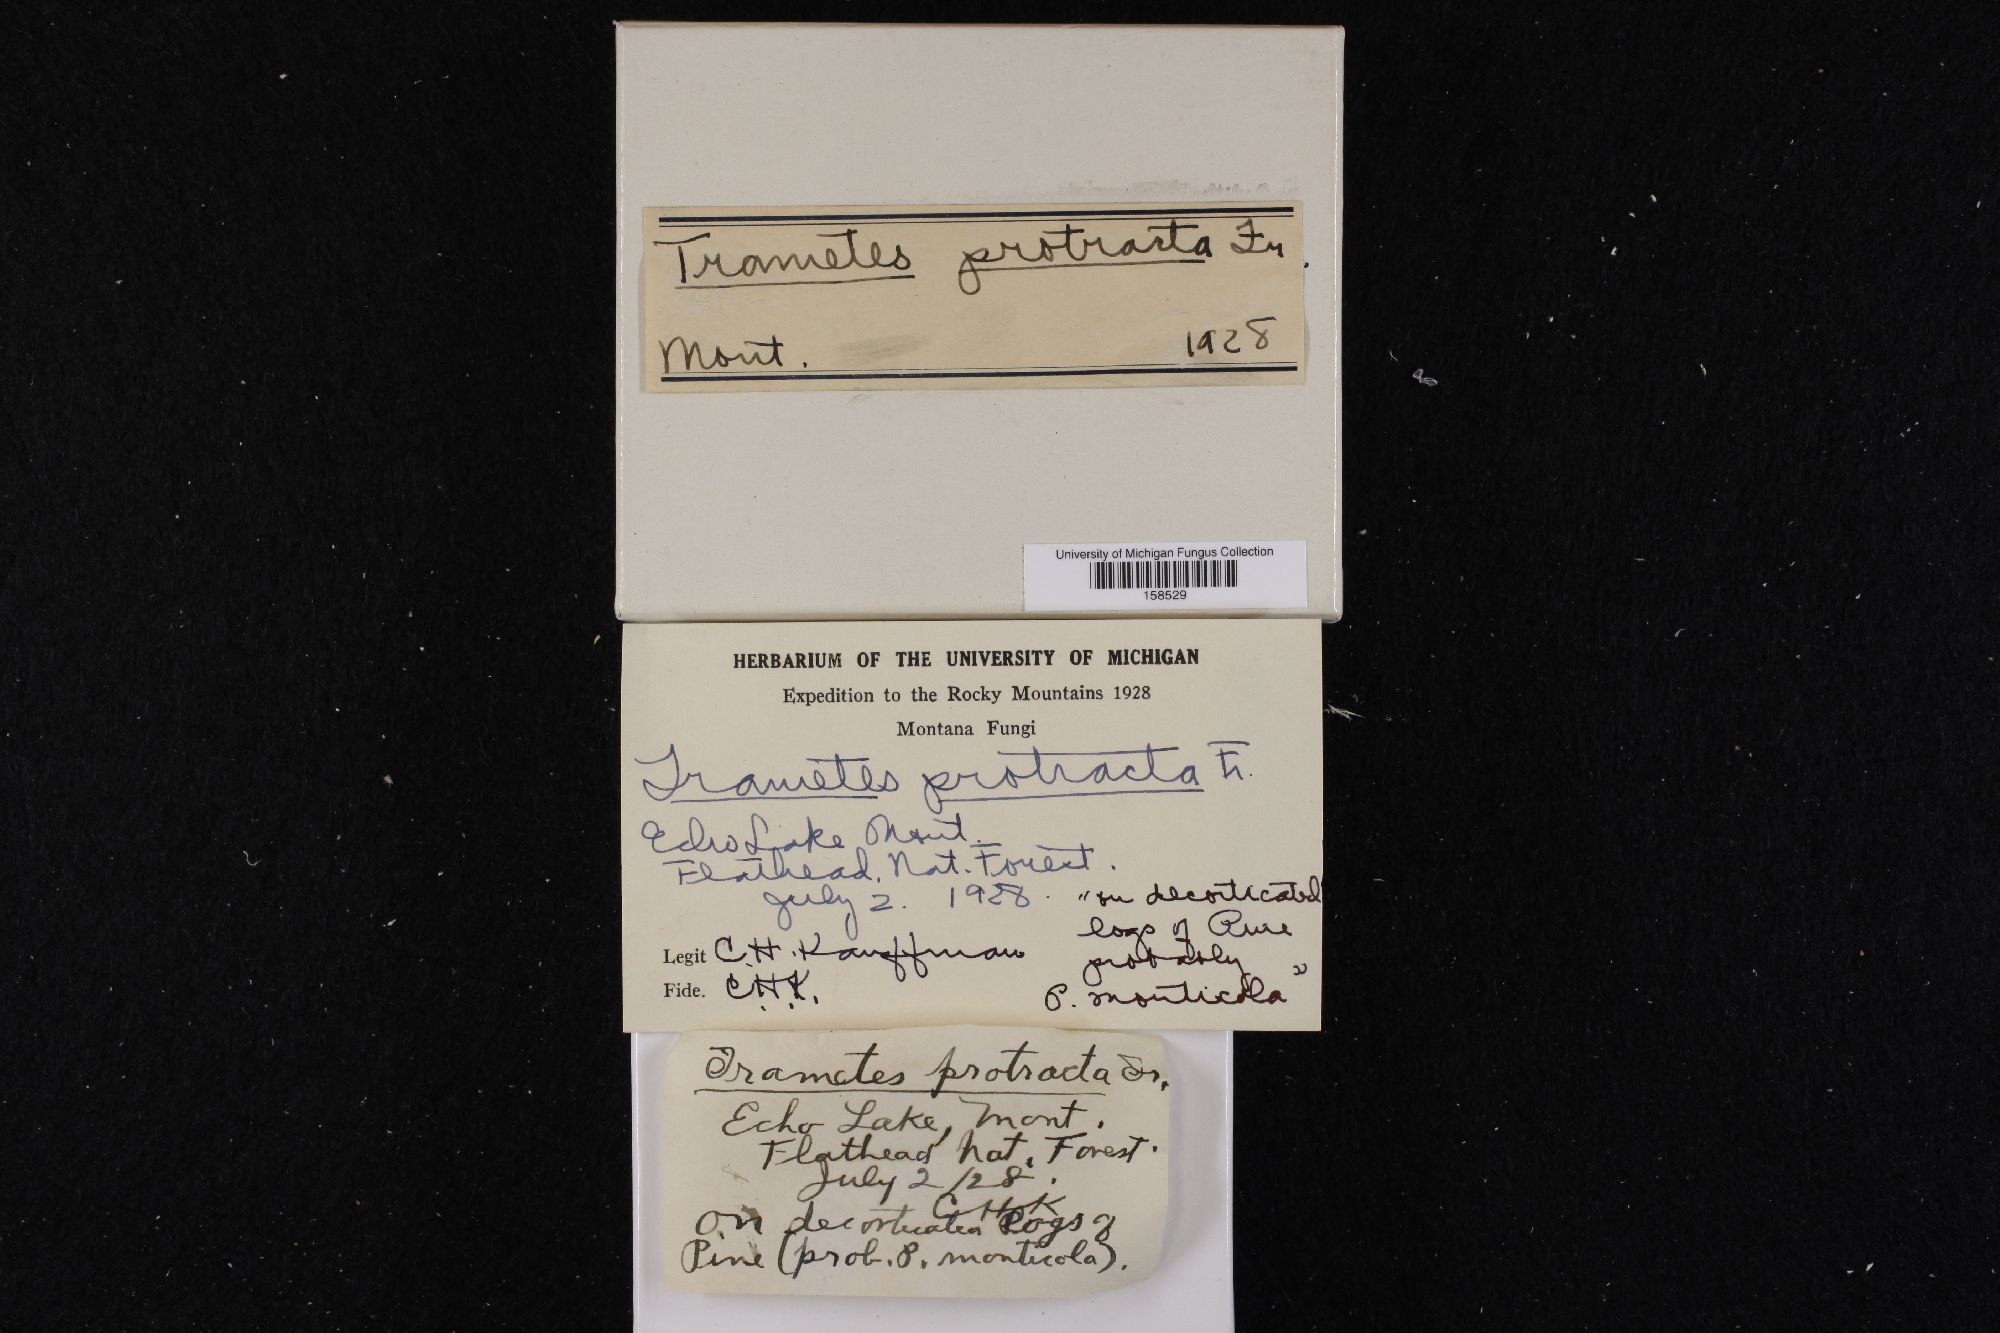 Trametes protracta Fr.
Mont. 1928
University of Michigan Fungus Collection
158529
HERBARIUM OF THE UNIVERSITY OF MICHIGAN
Expedition to the Rocky Mountains 1928
Montana Fungi
Trametes protracta Fr.
Echo Lake Mont.
Flathead. Nat. Forest.
July 2. 1928.
"on decorticated
logs of Pine
probably
P. monticola"
Legit C.H. Kauffman
Fide. C.H.K.
Trametes protracta Fr.
Echo Lake, Mont.
Flathead Nat. Forest.
July 2/28.
C.H.K
On decorticated logs of
Pine (prob. P. monticola).